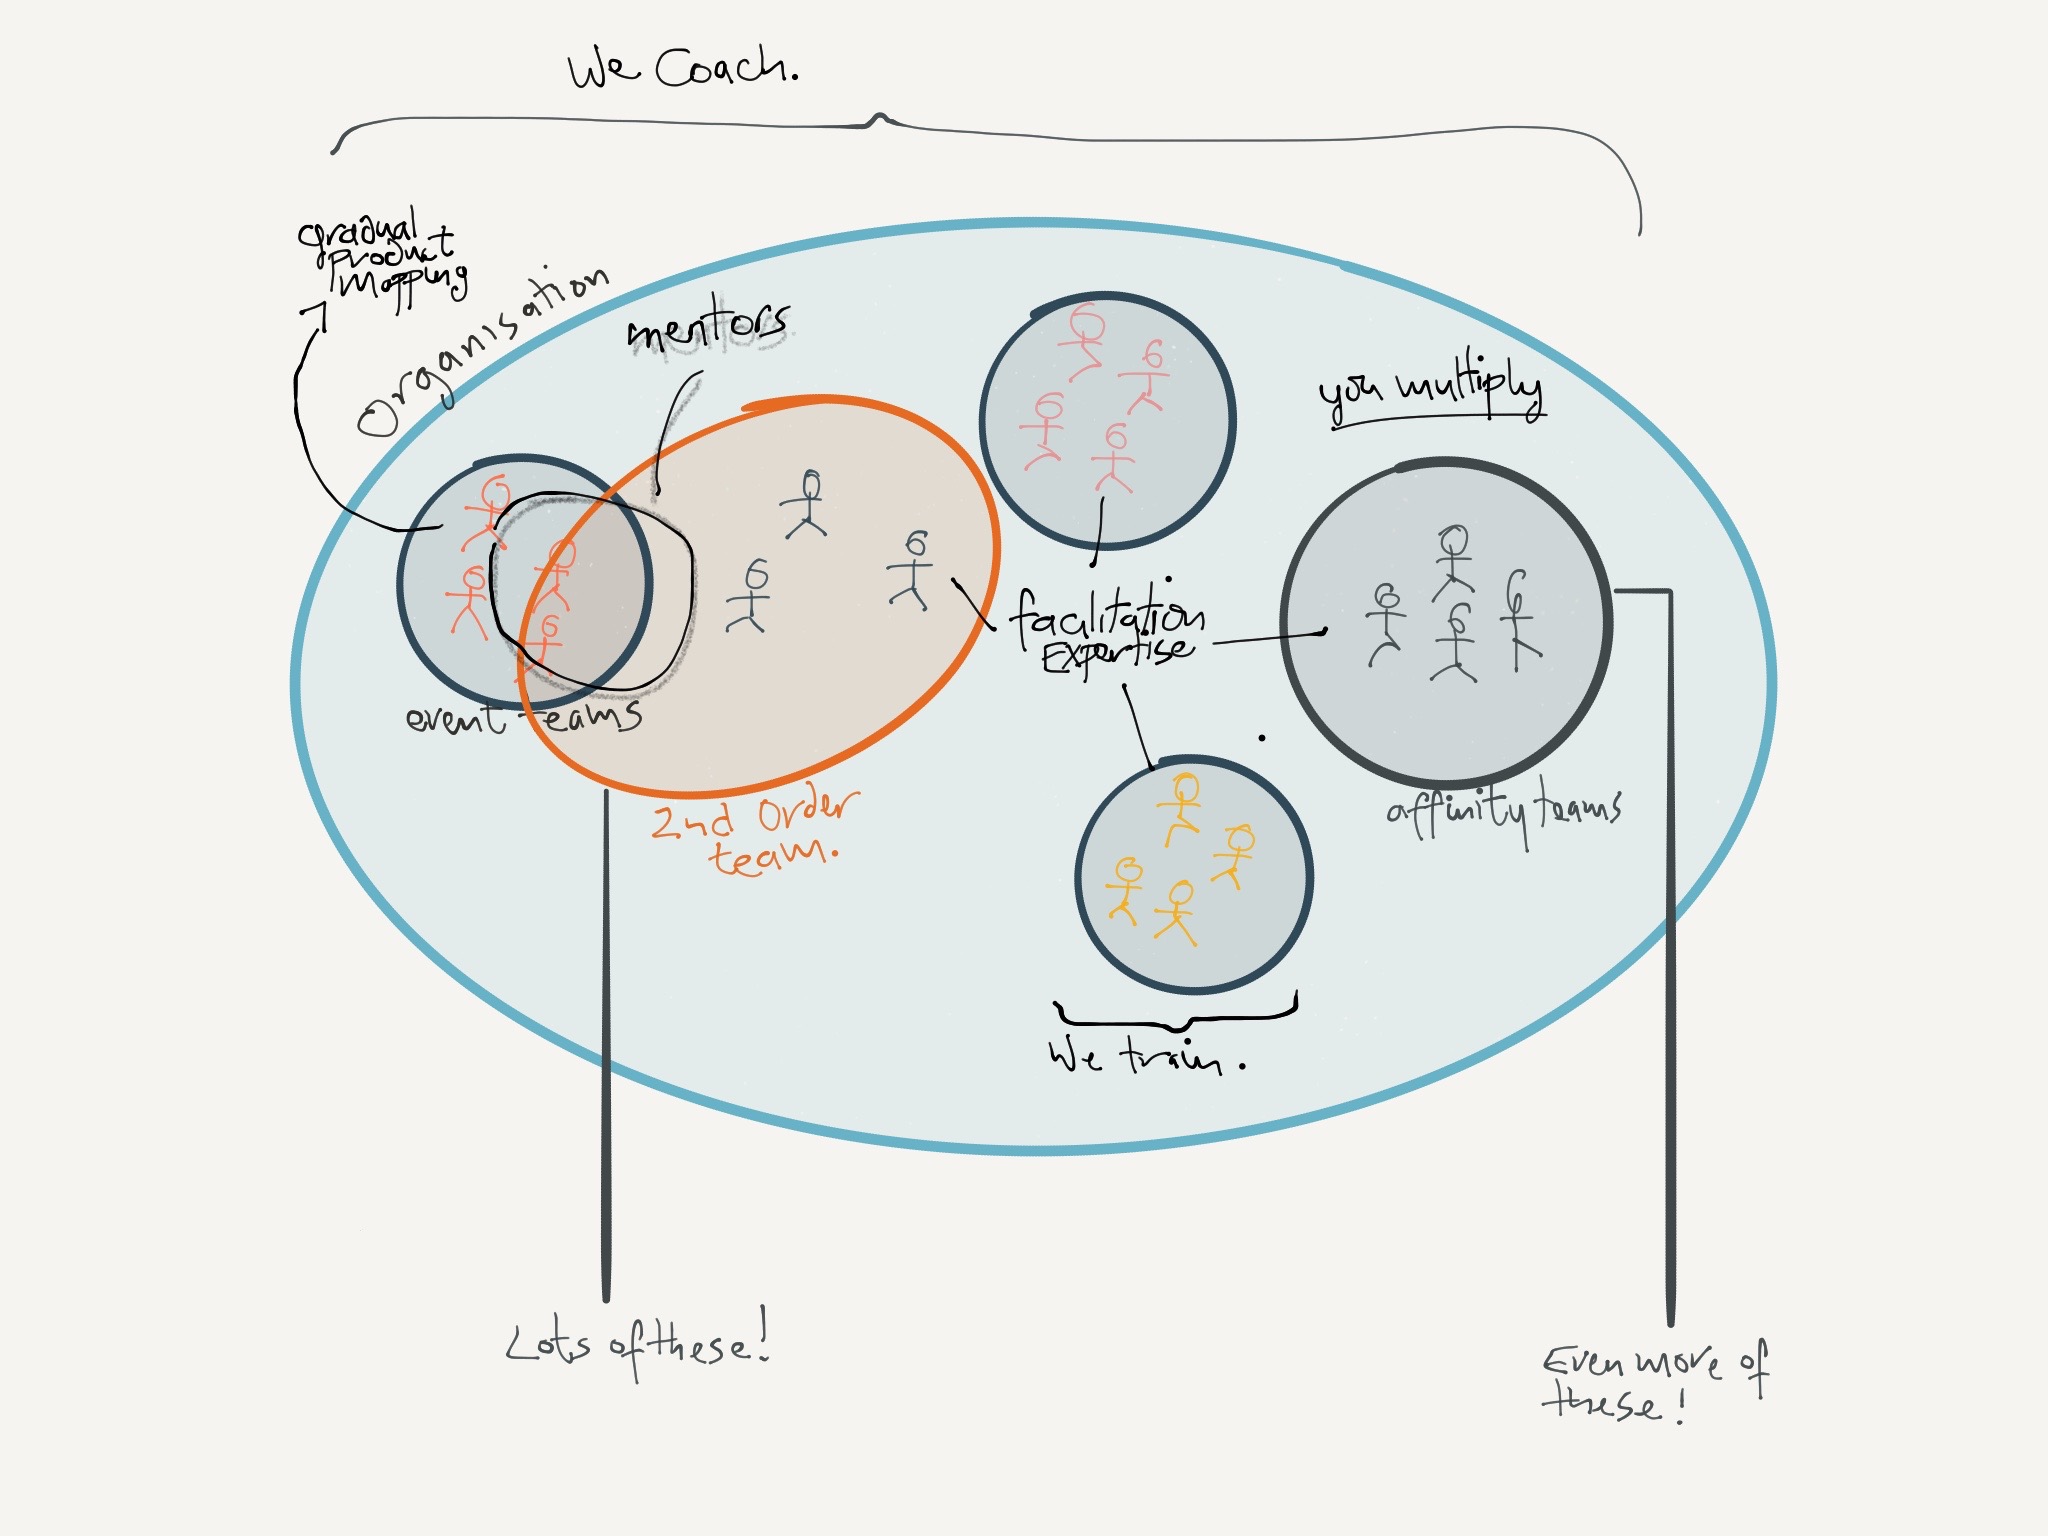 We Coach.
gradual
product
mapping
Organisation
mentors
you multiply
facilitation
Expertise
event teams
2nd Order
team.
affinity teams
We train.
Lots of these!
Even more of
these!